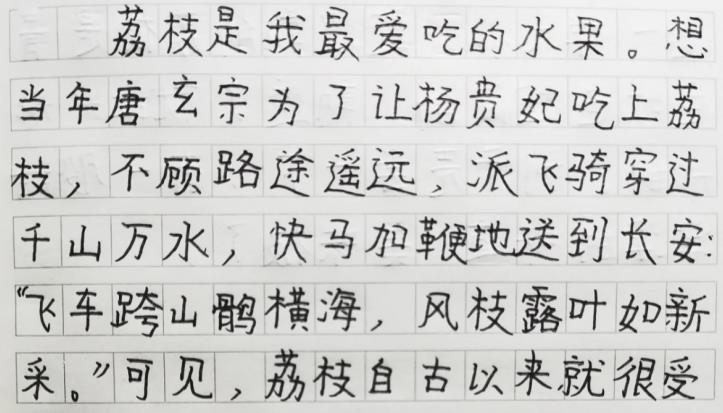 荔枝是我最爱吃的水果。想
当年唐玄宗为了让杨贵妃吃上荔
枝，不顾路途遥远，派飞骑穿过
千山万水，快马加鞭地送到长安:
“飞车跨山鹘横海，风枝露叶如新
采。”可见，荔枝自古以来就很受